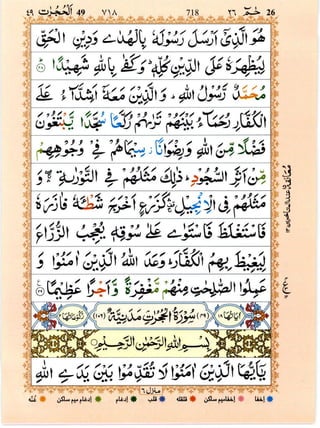 ٤٩ اَلْحُجُرٰت 49 ٧١٨ 718 ٢٦ حٰمٓ 26
هُوَ الَّذِيْۤ اَرْسَلَ رَسُوْلَهٗ بِالْهُدٰى وَدِيْنِ الْحَقِّ
لِيُظْهِرَهٗ عَلَى الدِّيْنِ كُلِّهٖ ؕ وَكَفٰى بِاللّٰهِ شَهِيْدًا
مُحَمَّدٌ رَّسُوْلُ اللّٰهِ ؕ وَالَّذِيْنَ مَعَهٗۤ اَشِدَّآءُ عَلَى
الْكُفَّارِ رُحَمَآءُ بَيْنَهُمْ تَرٰىهُمْ رُكَّعًا سُجَّدًا يَّبْتَغُوْنَ
فَضْلًا مِّنَ اللّٰهِ وَرِضْوَانًا ؗ سِيْمَاهُمْ فِيْ وُجُوْهِهِمْ
مِّنْ اَثَرِ السُّجُوْدِ ؕ ذٰلِكَ مَثَلُهُمْ فِي التَّوْرٰىةِ ۛۖ وَ
مَثَلُهُمْ فِي الْاِنْجِيْلِ ۛۚ كَزَرْعٍ اَخْرَجَ شَطْـَٔهٗ فَاٰزَرَهٗ
فَاسْتَغْلَظَ فَاسْتَوٰى عَلٰى سُوْقِهٖ يُعْجِبُ الزُّرَّاعَ
لِيَغِيْظَ بِهِمُ الْكُفَّارَ ؕ وَعَدَ اللّٰهُ الَّذِيْنَ اٰمَنُوْا وَ
عَمِلُوا الصّٰلِحٰتِ مِنْهُمْ مَّغْفِرَةً وَّاَجْرًا عَظِيْمًا ٢٩
اٰيَاتُهَا ١٨ (٤٩) سُوْرَةُ الْحُجُرٰتِ مَدَنِيَّةٌ (١٠٦) رُكُوْعَاتُهَا ٢
بِسْمِ اللّٰهِ الرَّحْمٰنِ الرَّحِيْمِ
يٰۤاَيُّهَا الَّذِيْنَ اٰمَنُوْا لَا تُقَدِّمُوْا بَيْنَ يَدَيِ اللّٰهِ
منزل ٦
اخفا اخفامیم ساکن قلقله قلب ادغام ادغام میم ساکن غنّه